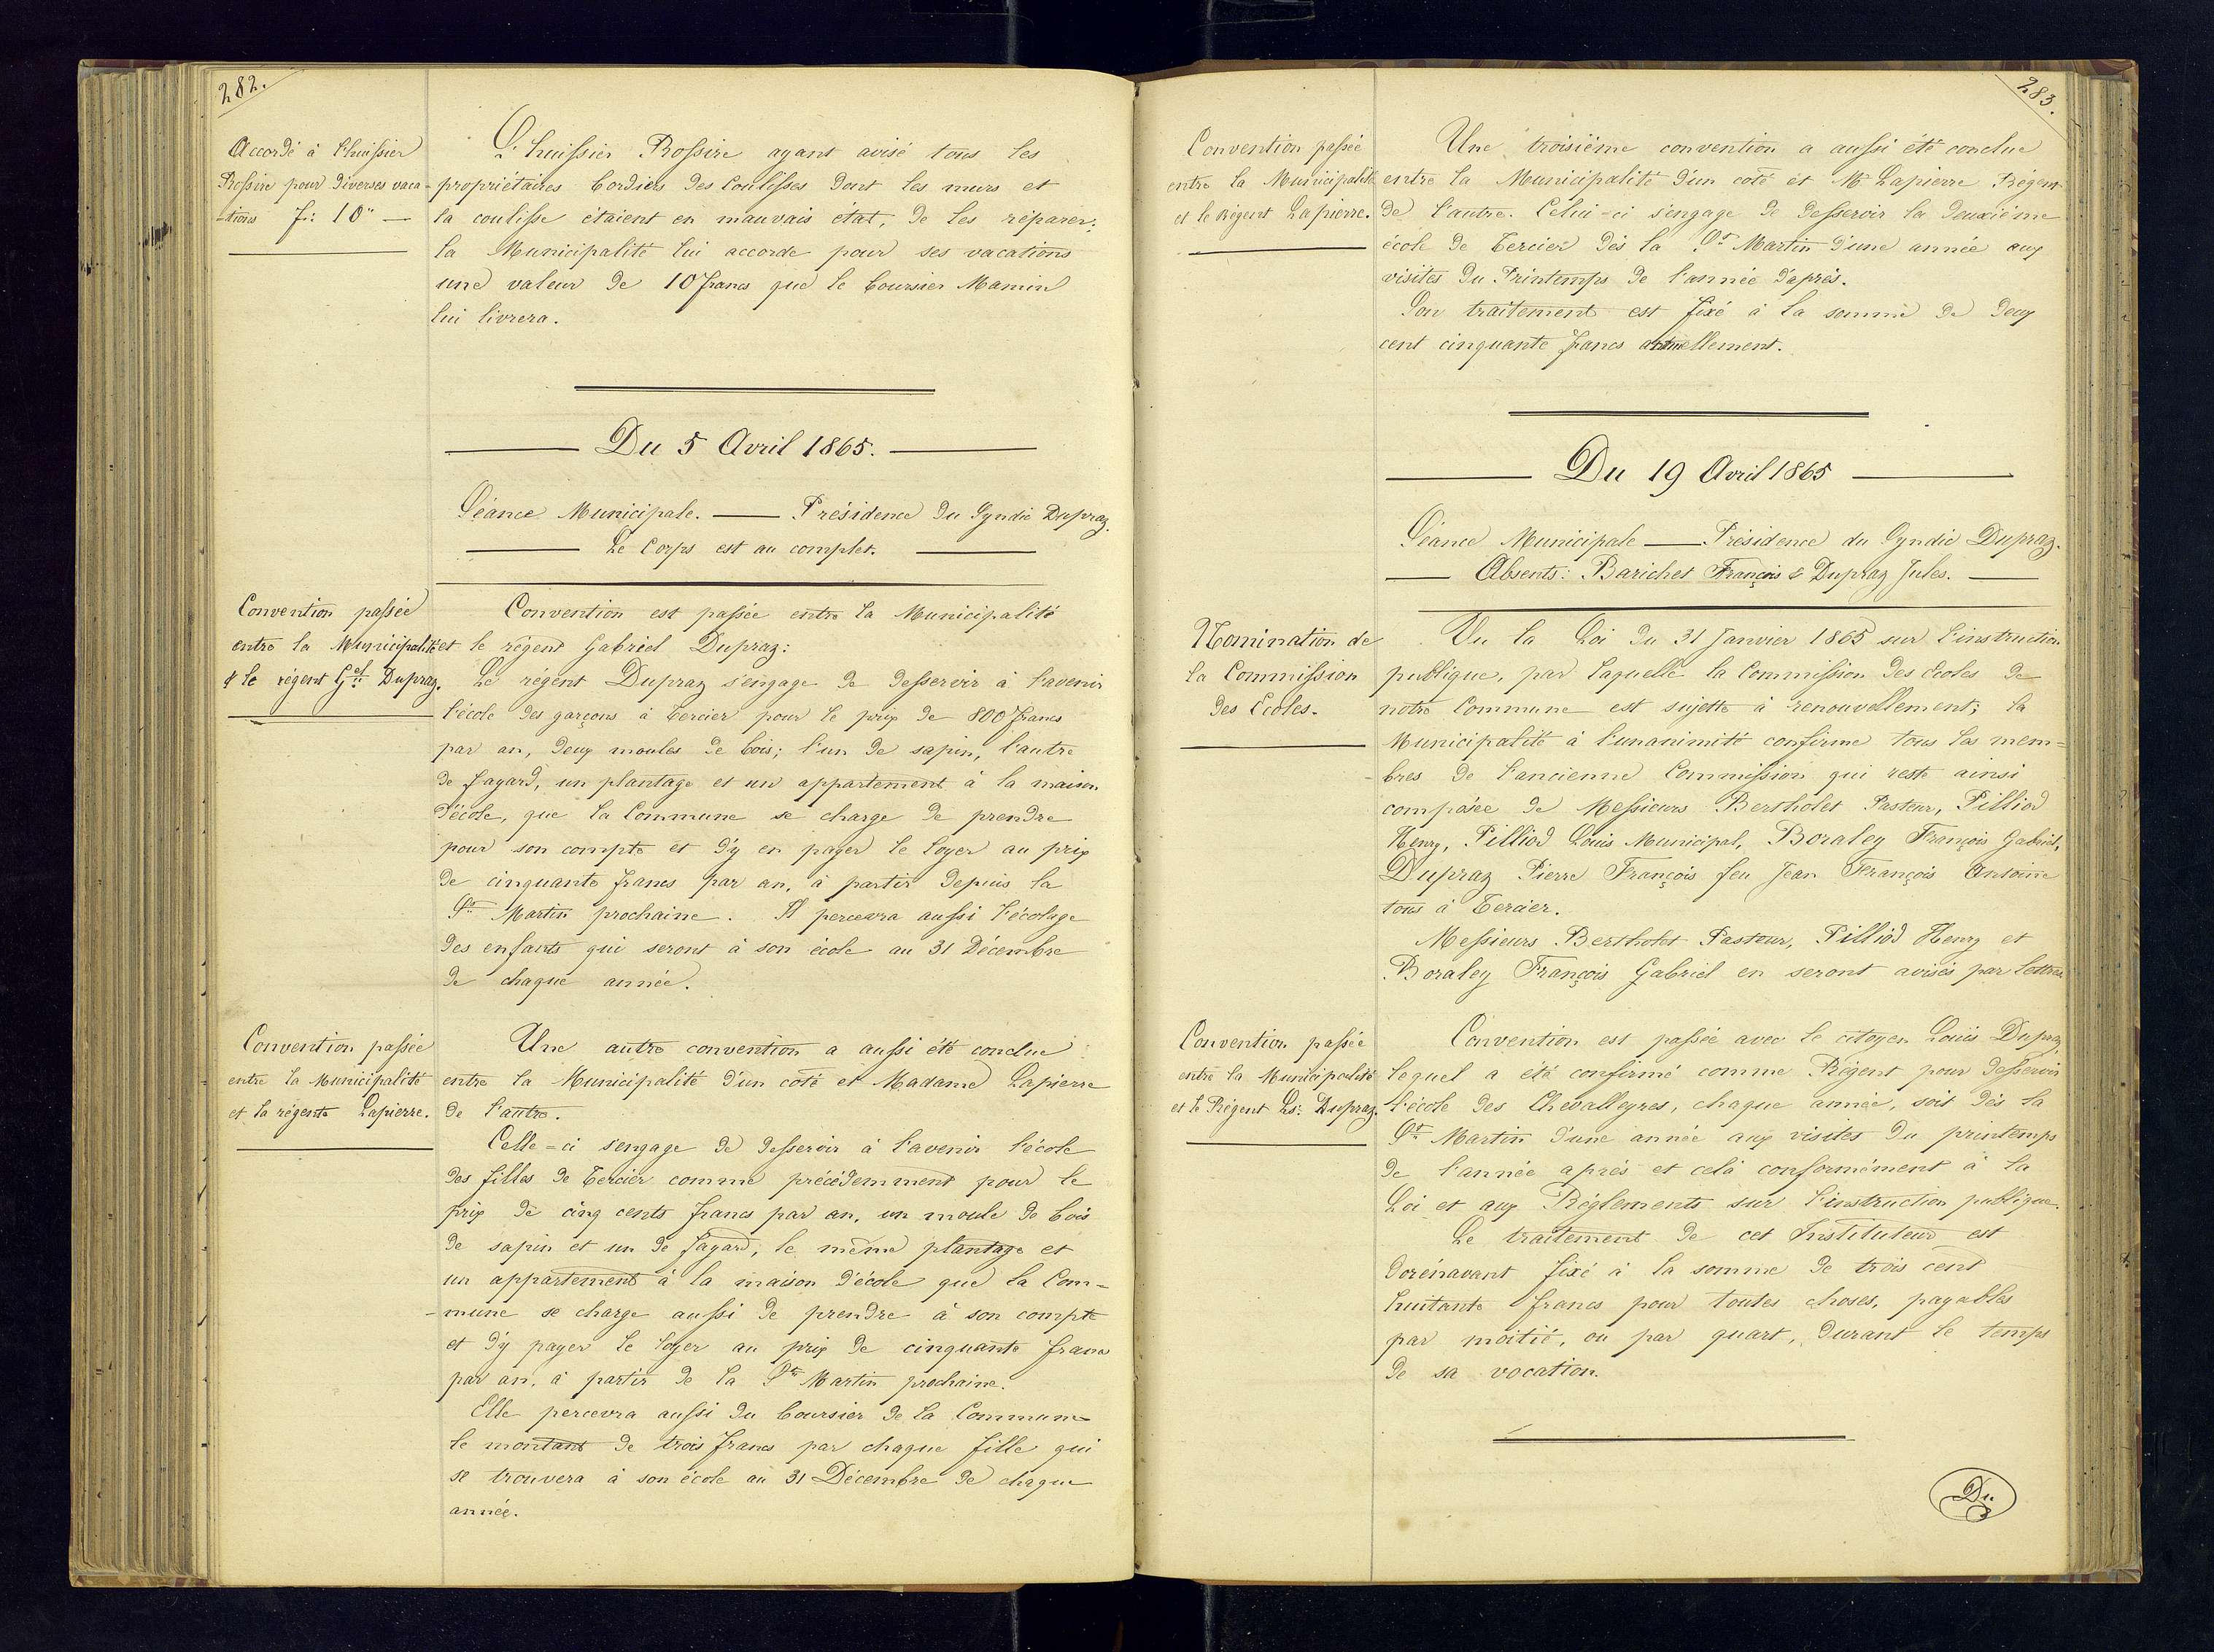 282.
Accordé à l'huissier
Rossire pour diverses vaca-
-tions f: 10" —
L'huissier Rossire ayant avisé tous les
propriétaires bordiers des Coulisses dont les murs et
la coulisse étaient en mauvais état, de les réparer;
la Municipalité lui accorde pour ses vacations
une valeur de 10 francs que le boursier Mamin
lui livrera.
Du 5 Avril 1865.
Séance Municipale. — Présidence du Syndic Dupraz.
Le Corps est au complet.
Convention passée
entre la Municipalité
& le régent Gel Dupraz.
Convention est passée entre la Municipalité
et le régent Gabriel Dupraz:
Le régent Dupraz s'engage de desservir à l'avenir
l'école des garçons à Tercier pour le prix de 800 francs
par an, deux moules de bois; l'un de sapin, l'autre
de fayard, un plantage et un appartement à la maison
d'école, que la Commune se charge de prendre
pour son compte et d'y en payer le loyer au prix
de cinquante francs par an, à partir depuis la
St Martin prochaine. Il percevra aussi l'écolage
des enfants qui seront à son école au 31 Décembre
de chaque année.
Convention passée
entre la Municipalité
et la régente Lapierre.
Une autre convention a aussi été conclue
entre la Municipalité d'un coté et Madame Lapierre
de l'autre.
Celle-ci s'engage de desservir à l'avenir l'école
des filles de Tercier comme précédemment pour le
prix de cinq cents francs par an, un moule de bois
de sapin et un de fayard, le même plantage et
un appartement à la maison d'école que la Com-
-mune se charge aussi de prendre à son compte
et d'y payer le loyer au prix de cinquante francs
par an, à partir de la St Martin prochaine.
Elle percevra aussi du boursier de la Commune
le montant de trois francs par chaque fille qui
se trouvera à son école au 31 Décembre de chaque
année.
283.
Convention passée
entre la Municipalité
et le Régent Lapierre.
Une troisième convention a aussi été conclue
entre la Municipalité d'un coté et Mr Lapierre Régent
de l'autre. Célui-ci s'engage de desservir la deuxième
école de Tercier dès la St Martin d'une année aux
visites du Printemps de l'année d'après.
Son traitement est fixé à la somme de deux
cent cinquante francs annuellement.
Du 19 Avril 1865
Séance Municipale — Présidence du Syndic Dupraz.
Absents: Barichet François & Dupraz Jules.
Nomination de
la Commission
des Ecoles.
Vu la Loi du 31 Janvier 1865 sur l'instruction
publique, par laquelle la Commission des écoles de
notre Commune est sujette à renouvellement; la
Municipalité à l'unanimité confirme tous les mem-
-bres de l'ancienne Commission qui reste ainsi
composée de Messieurs Bertholet Pasteur, Pilliod
Henry, Pilliod Louis Municipal, Boraley François Gabriel,
Dupraz Pierre François feu Jean François Antoine
tous à Tercier.
Messieurs Bertholet Pasteur, Pilliod Henry et
Boraley François Gabriel en seront avisés par lettres
Convention passée
entre la Municipalité
et le Régent Ls: Dupraz.
Convention est passée avec le citoyen Louis Dupraz,
lequel a été confirmé comme Régent pour desservir
l'école des Chevalleyres, chaque année, soit dès la
St Martin d'une année aux visites du printemps
de l'année après et celà conformément à la
Loi et aux Réglements sur l'instruction publique.
Le traitement de cet Instituteur est
dorénavant fixé à la somme de trois cent
huitante francs pour toutes choses, payables
par moitié, ou par quart, durant le temps
de sa vocation.
Du